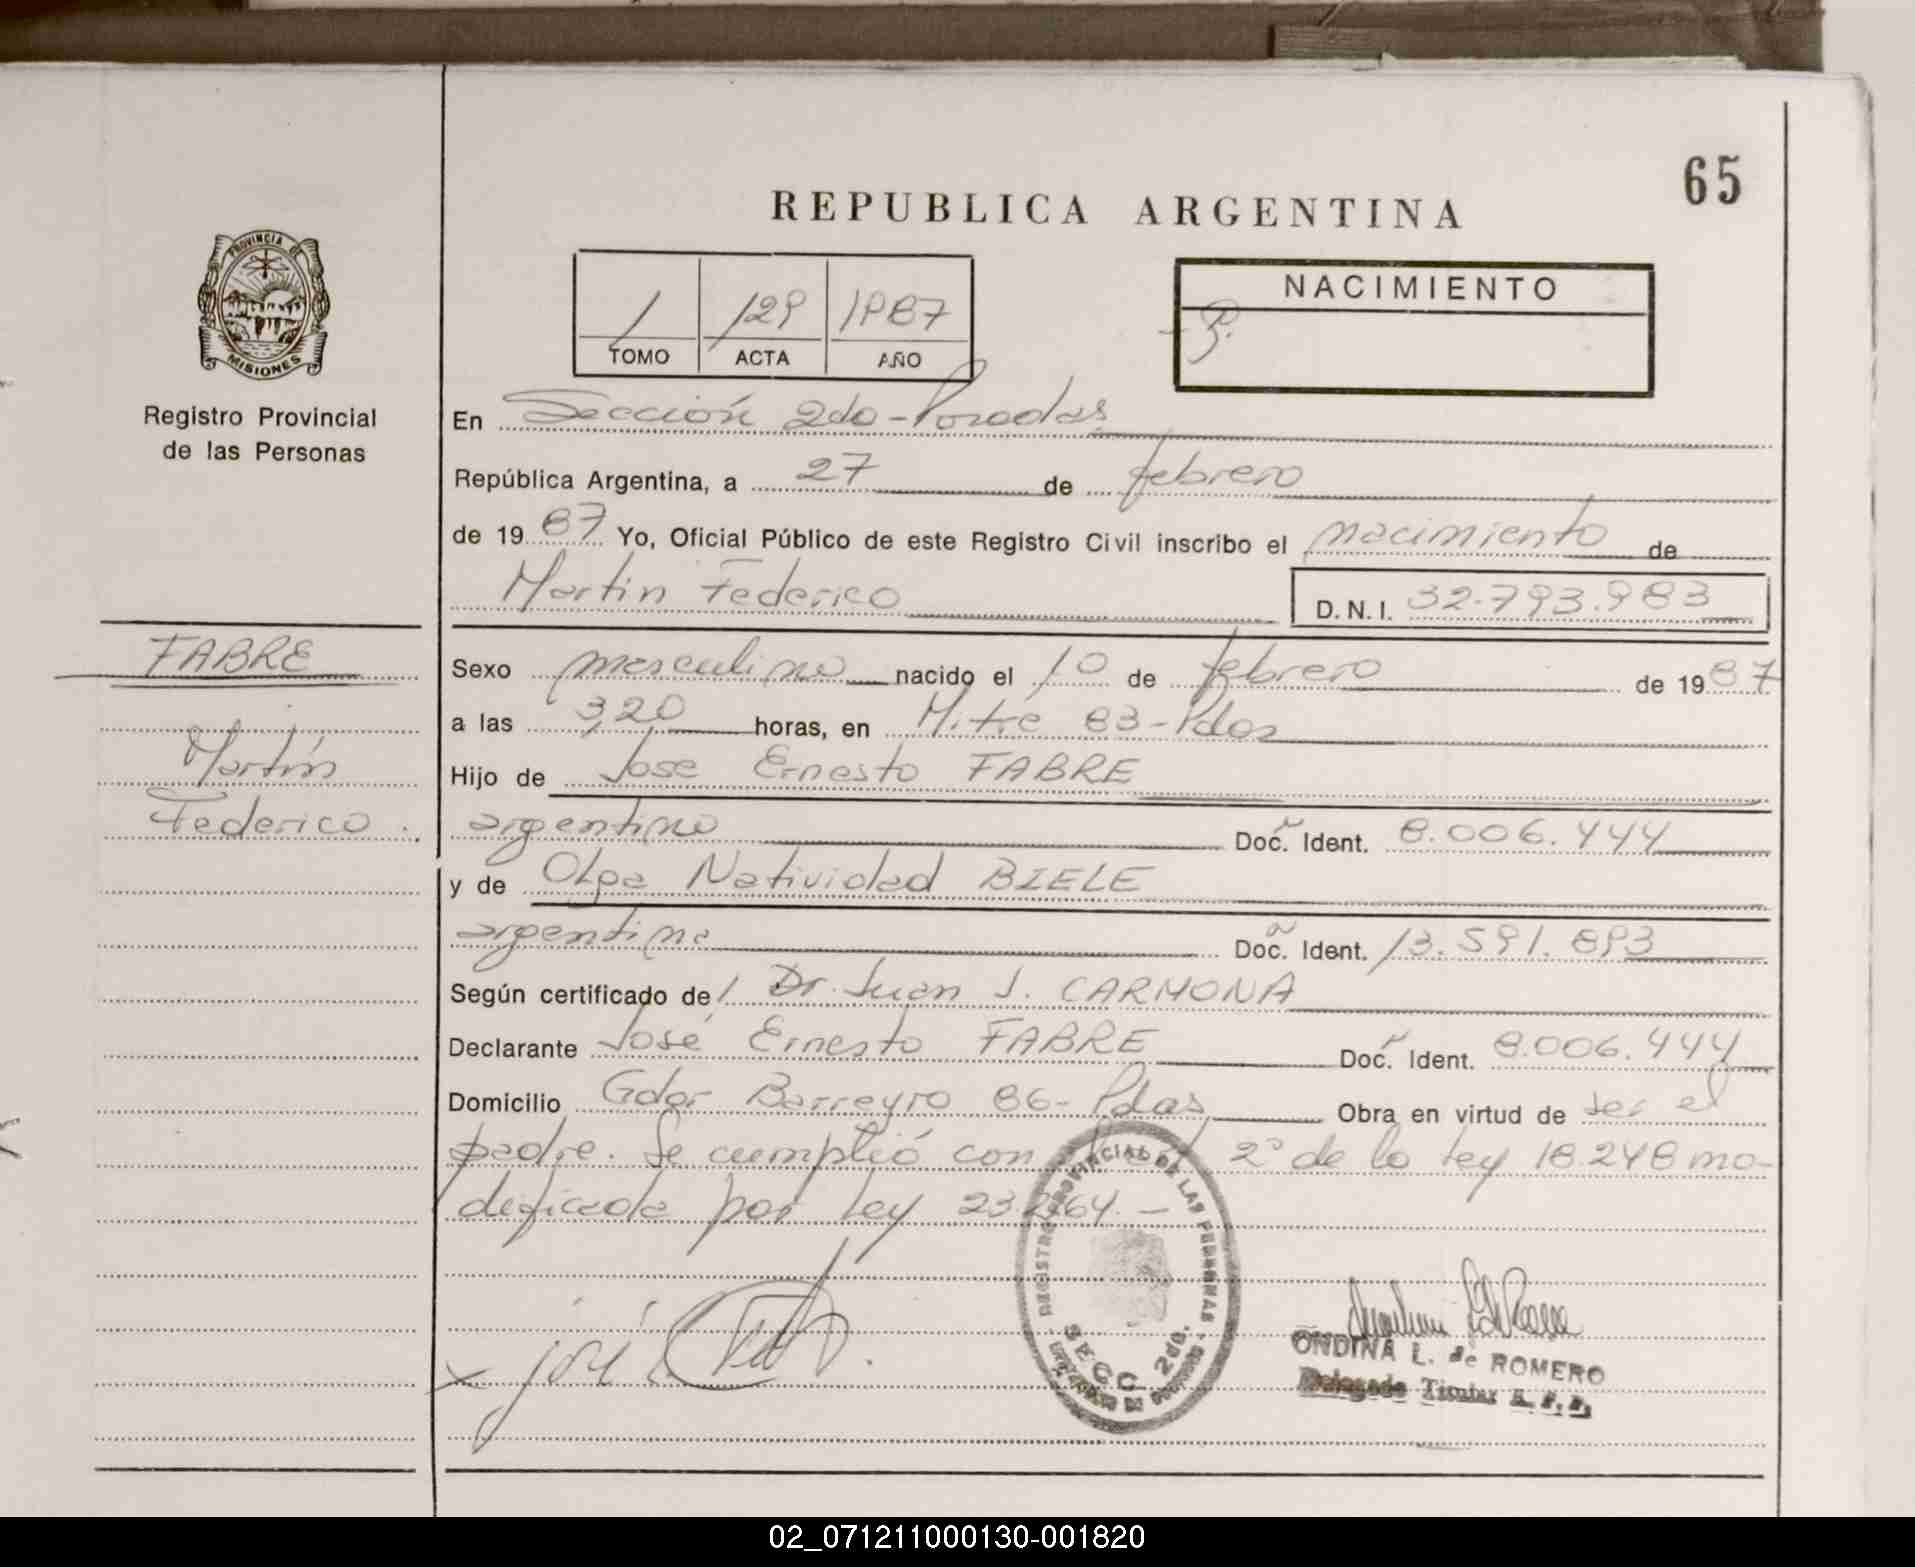 65
REPUBLICA ARGENTINA
PROVINCIA DE
MISIONES
Registro Provincial
de las Personas
1 129 1987
TOMO ACTA AÑO
NACIMIENTO
En Sección 2do - Posadas
República Argentina, a 27 de febrero
de 1987 Yo, Oficial Público de este Registro Civil inscribo el nacimiento de
Martin Federico D.N.I. 32.793.983
FABRE
Martín
Federico.
Sexo masculino nacido el 10 de febrero de 1987
a las 3,20 horas, en Mitre 83 - Pdas
Hijo de José Ernesto FABRE
argentino Doc. Ident. 8.006.444
y de Olga Natividad BIELE
argentina Doc. Ident. 13.591.893
Según certificado de/ Dr. Juan J. CARMONA
Declarante José Ernesto FABRE Doc. Ident. 8.006.444
Domicilio Gdor Barreyro 86 - Pdas Obra en virtud de ser el
padre. Se cumplió con 2° de la Ley 18.248 mo-
dificada por Ley 23.264. -
REGISTRO PROVINCIAL DE LAS PERSONAS
SECC. 2da.
ONDINA L. de ROMERO
Delegada Titular R. P. P.
02_071211000130-001820